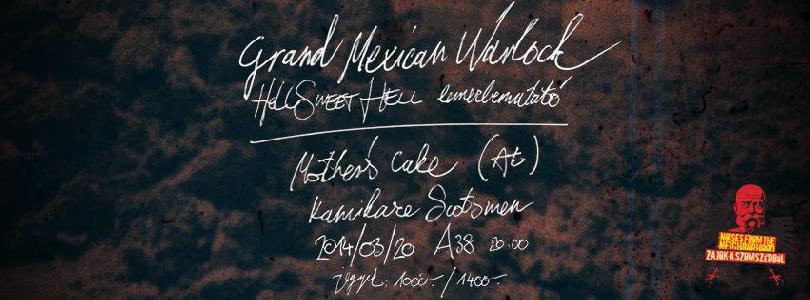 Grand Mexican Warlock
Hell Sweet Hell lemezbemutató
Mother's Cake (At)
Kamikaze Scotsmen
2014/03/20 A38 20:00
Jegyek: 1000.-/1400.-
NOISES FROM THE
NEIGHBORHOOD
ZAJOK A SZOMSZÉDBÓL